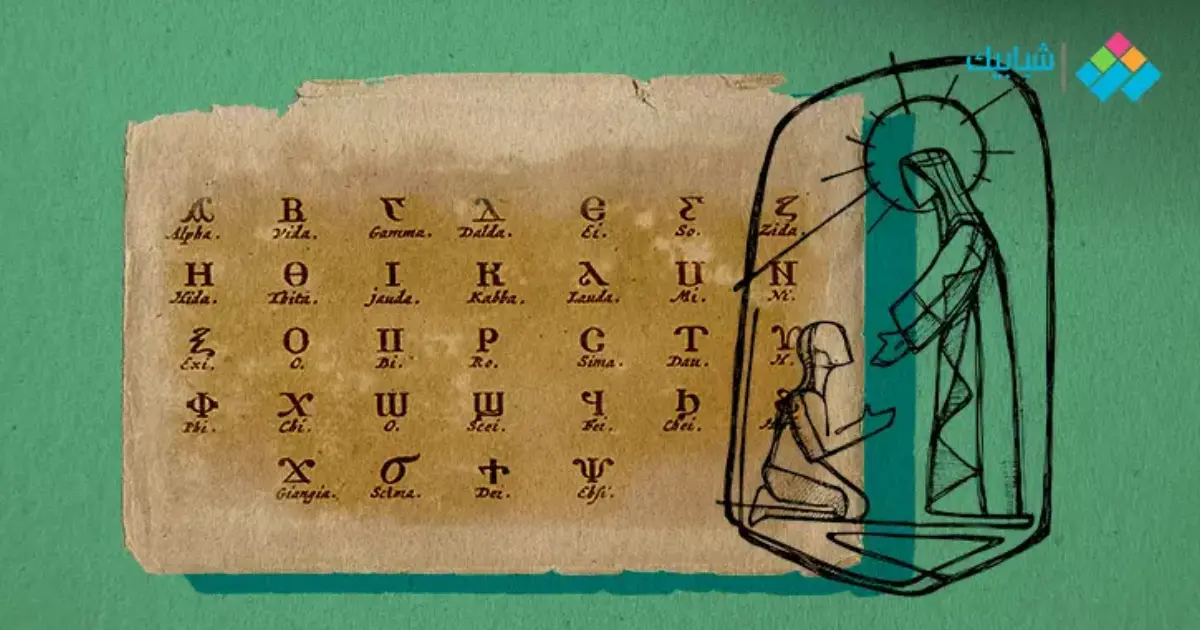 شبابيك
Ⲁ Ⲃ Ⲅ Ⲇ Ⲉ Ⲋ Ⲍ
Alpha. Vida. Gamma. Dalda. Ei. So. Zida.
Ⲏ Ⲑ Ⲓ Ⲕ Ⲗ Ⲙ Ⲛ
Hida. Thita. jauda. Kabba. Lauda. Mi. Ni.
Ⲝ Ⲟ Ⲡ Ⲣ Ⲥ Ⲧ Ⲩ
Exi. O. Bi. Ro. Sima. Dau. H.
Ⲫ Ⲭ Ⲱ Ϣ Ϥ Ϧ
Phi. Chi. O. Scei. Fei. Chei.
Ϫ Ϭ Ϯ Ⲯ
Giangia. Scima. Dei. Ebsi.